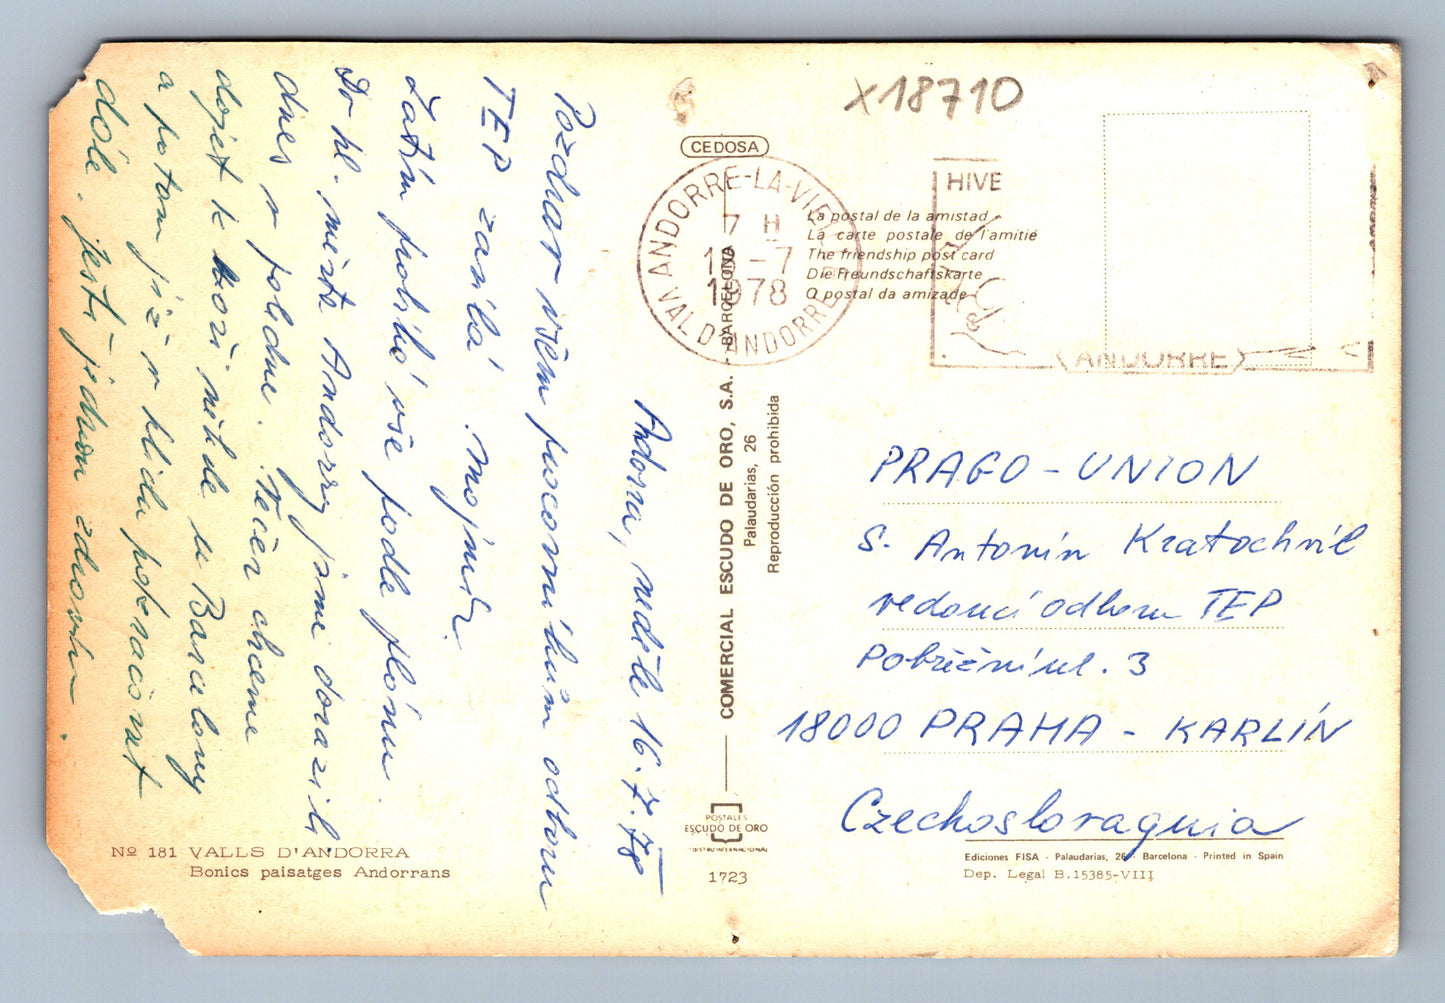 x18710
CEDOSA
ANDORRE-LA-VIEILLE
7 H
1978
VAL D'ANDORRE
HIVE
(ANDORRE)
La postal de la amistad
La carte postale de l'amitié
The friendship post card
Die Freundschaftskarte
O postal da amizade
Andorra, neděle 16.7.78
Pozdrav všem pracovníkům odboru
TEP zasílá Mojmír.
Zatím probíhá vše podle plánu.
Do hl. města Andorry jsme dorazili
dnes v poledne. Večer chceme
dojet k moři někde u Barcelony
a potom již v klidu pokračovat
dále. Ještě jednou zdravím.
COMERCIAL ESCUDO DE ORO, S.A. - BARCELONA
Palaudarias, 26
Reproducción prohibida
PRAGO - UNION
S. Antonín Kratochvíl
vedoucí odboru TEP
Pobřežní ul. 3
18000 PRAHA - KARLÍN
Czechoslovaquia
Nº 181 VALLS D'ANDORRA
Bonics paisatges Andorrans
POSTALES
ESCUDO DE ORO
1723
Ediciones FISA - Palaudarias, 26 - Barcelona - Printed in Spain
Dep. Legal B.15385-VIII